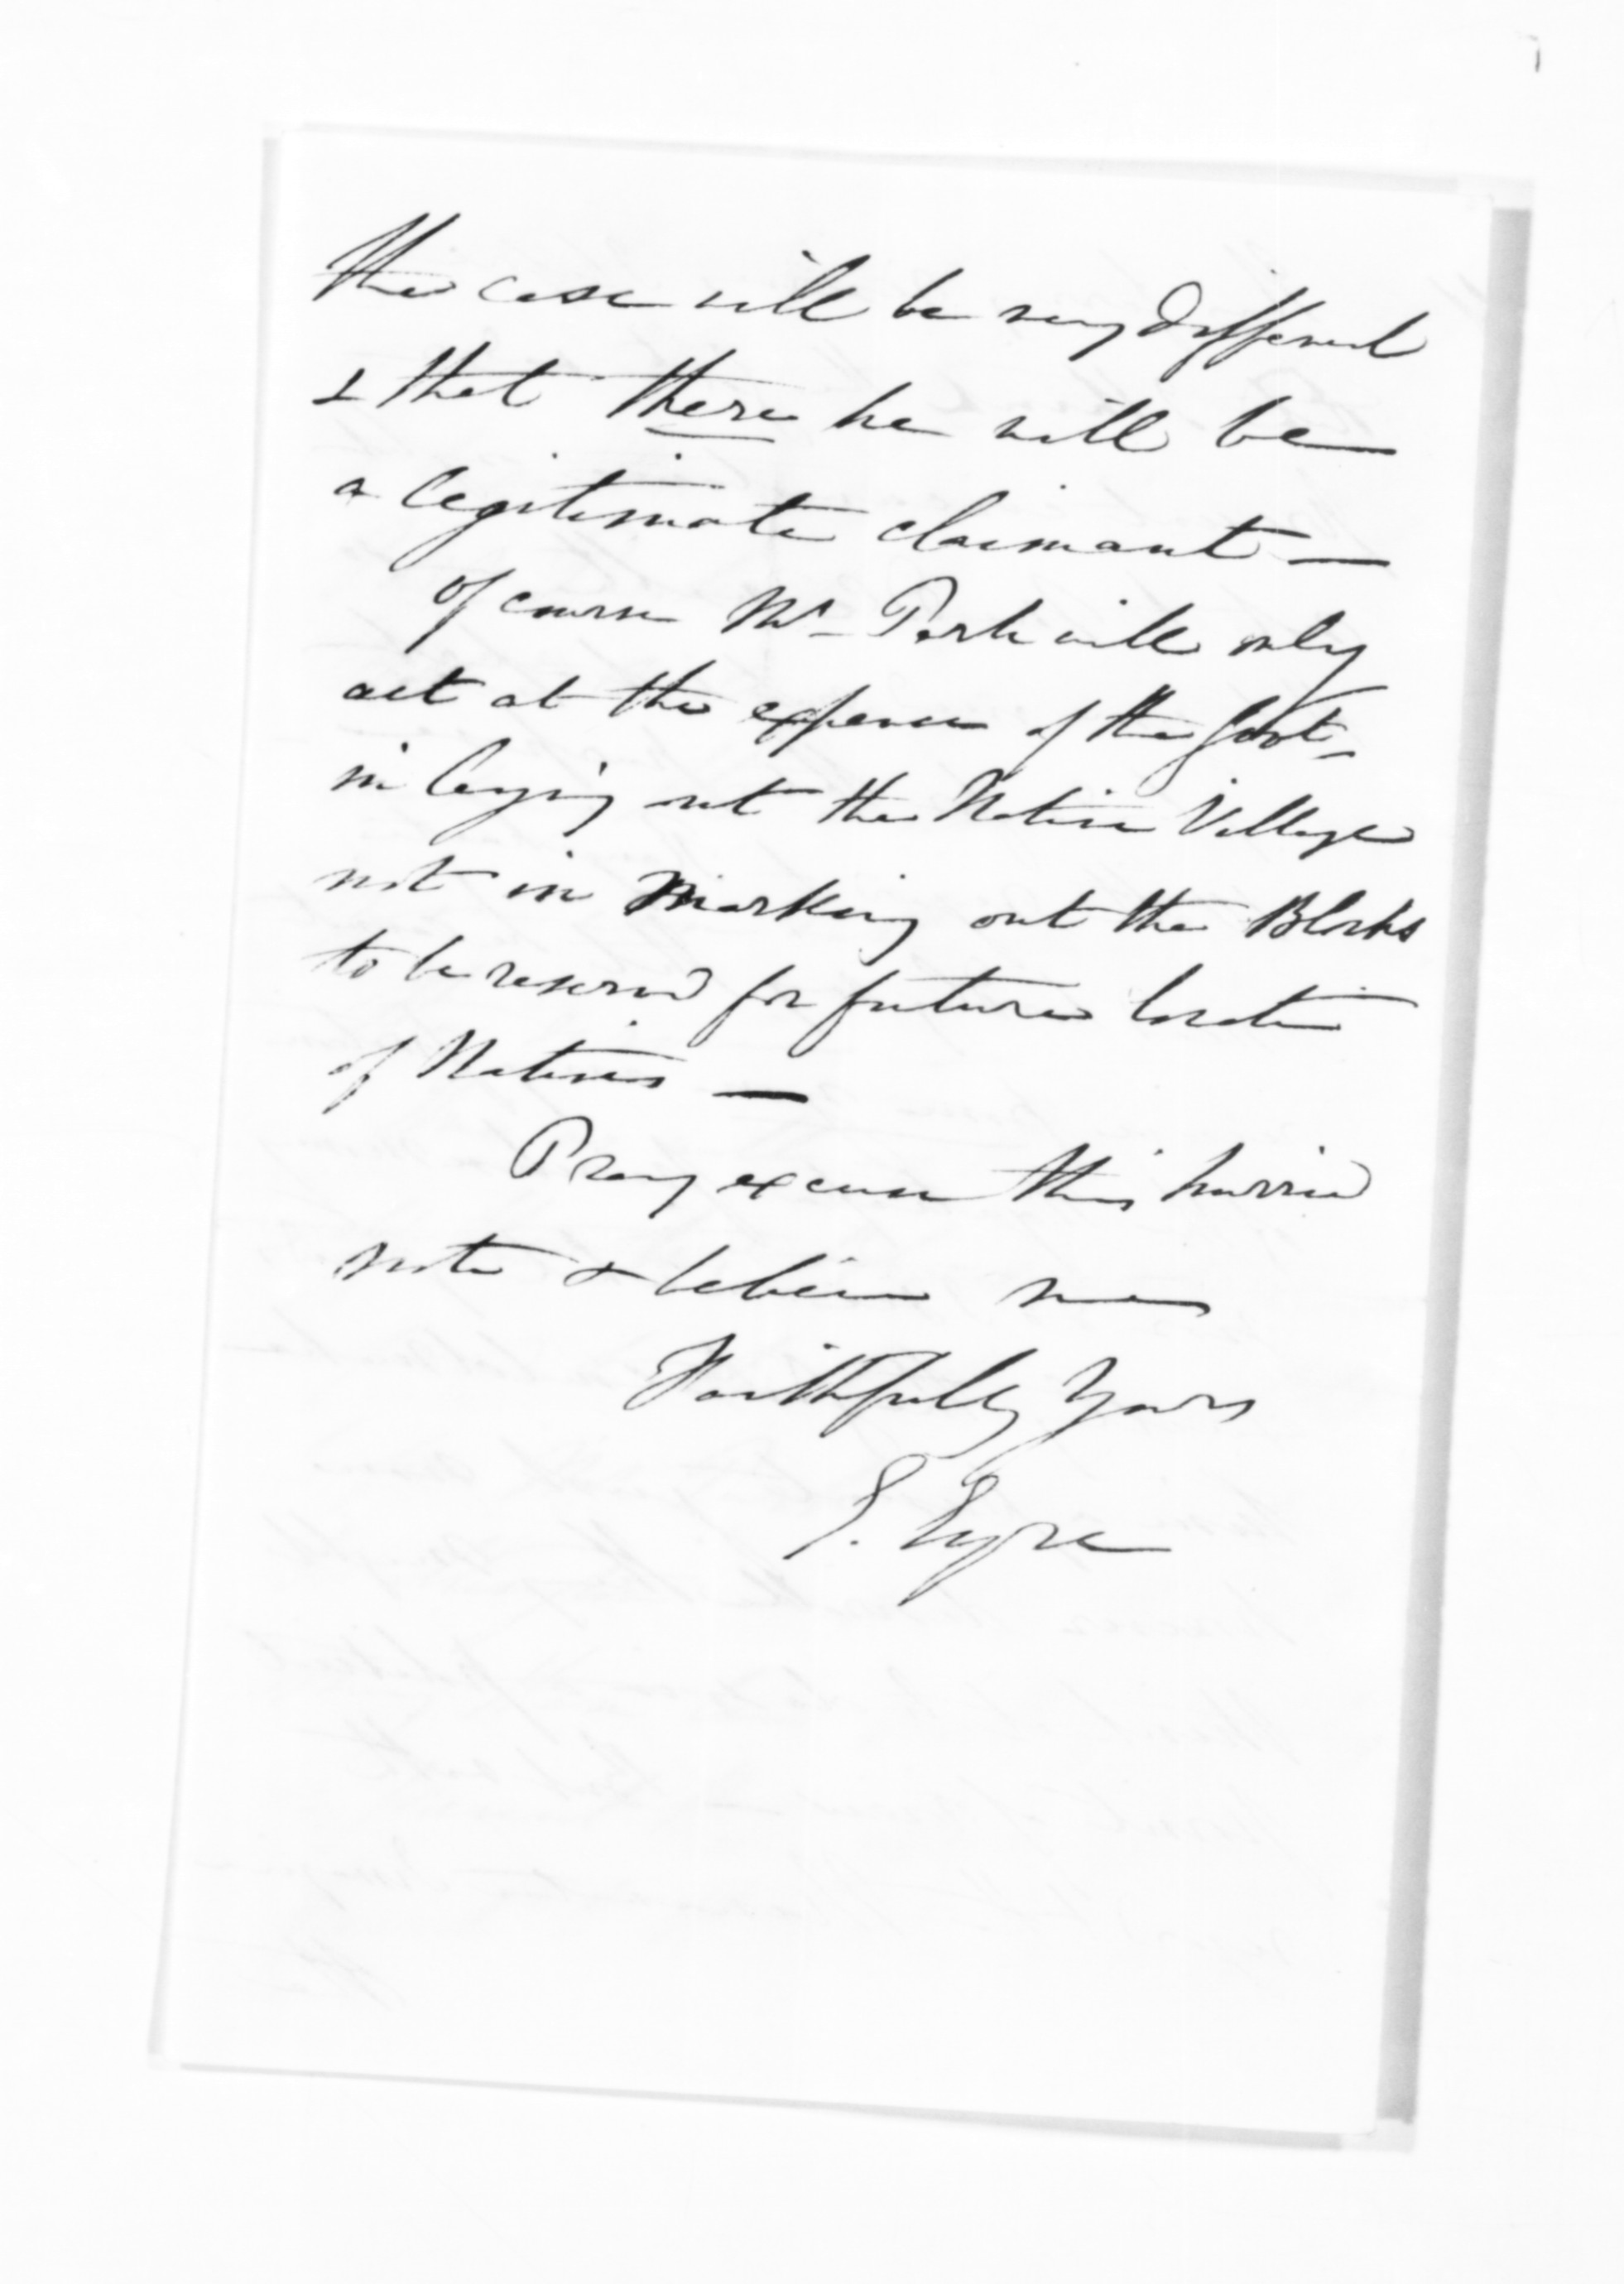 the case will be very different
& that there he will be
a legitimate claimant —
of course Mr Park will only
act at the expense of the Govt
in laying out the Native Village
not in marking out the Blocks
to be reserved for future location
of Natives —
Pray excuse this hurried
note & believe me
Faithfully Yours
E. Eyre